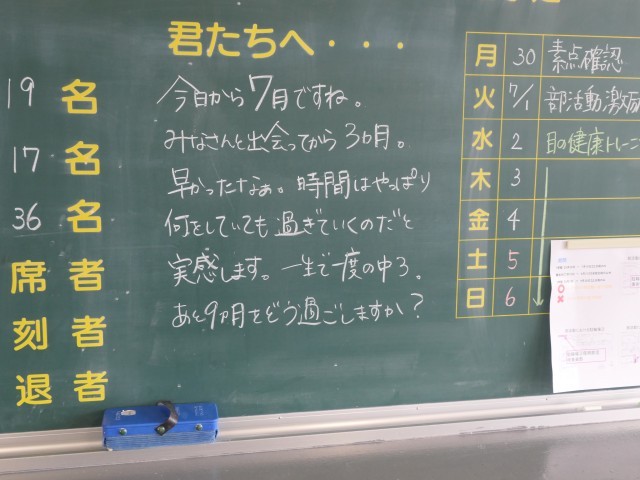 君たちへ・・・
今日から7月ですね。
みなさんと出会ってから3ヵ月。
早かったなぁ。時間はやっぱり
何をしていても過ぎていくのだと
実感します。一生で一度の中3。
あと9ヵ月をどう過ごしますか?
19 名
17 名
36 名
席者
刻者
退者
月 30 素点確認
火 7/1 部活動激励
水 2 目の健康トレーニ
木 3
金 4
土 5
日 6